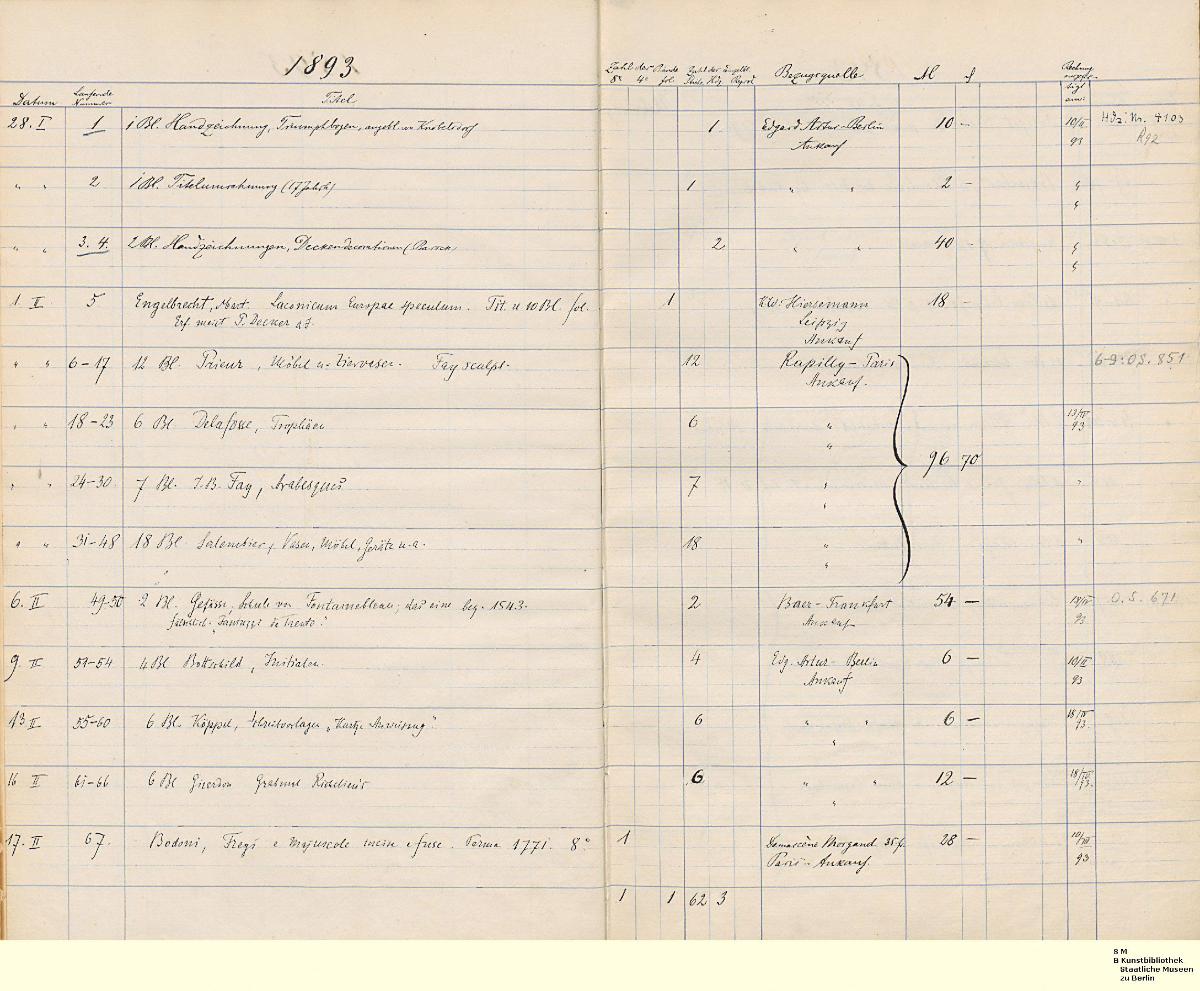 1893
Datum Laufende Nummer Titel Zahl der Bände 8° 4° fol. Zahl der Bezugsquelle M Rechnung
28. I 1 1 Bl. Handzeichnung, Triumphbogen, angebl. von Knobelsdorf 1 Edgard Artur-Berlin 10 - 10/II Hdz. Nr. 4103
Ankauf 93
" " 2 1 Bl. Titelumrahmung (17 Jahrh) 1 " " 2 - "
"
" " 3. 4. 2 Bl. Handzeichnungen, Deckendecorationen (Barock 2 " " 40 - "
"
1 II 5 Engelbrecht, Mart. Laconicum Europae speculum. Tit. u 10 Bl. fol. 1 Hiersemann 18 -
Erf. meist P. Decker d. J. Leipzig
Ankauf
" " 6-17 12 Bl. Prieur, Möbel u. Ziervasen. Fay sculps. 12 Rapilly-Paris 6-9: O.S. 851
Ankauf.
" " 18-23 6 Bl. Delafosse, Trophäen 6 " 13/IV
" 93
96 70
" " 24-30 7 Bl. J.B. Fay, Arabesques 7 " "
"
" " 31-48 18 Bl. Salembier, Vasen, Möbel, Geräte u. a. 18 " "
"
6. II 49-50 2 Bl. Gefässe, Schule von Fontainebleau; das eine bez. 1543. 2 Baer-Frankfurt 54 - O.S. 671
fälschlich "Fantuzzi da Trento". Ankauf 93
9. II 51-54 4 Bl. Bottschild, Initialen. 4 Edg. Artur-Berlin 6 - 10/II
Ankauf 93
13 II 55-60 6 Bl. Köppel, Schreibvorlagen "Kurtze Anweisung" 6 " " 6 - 18/IV
" 93.
16 II 61-66 6 Bl Girardon Grabmal Richelieu's 6 " " 12 -
" 93.
17. II 67. Bodoni, Fregi e majuscole incise e fuse. Parma 1771. 8° 1 Damascène Morgand 35 f. 28 -
Paris. Ankauf. 93
1 1 62 3
8 M
B Kunstbibliothek
Staatliche Museen
zu Berlin